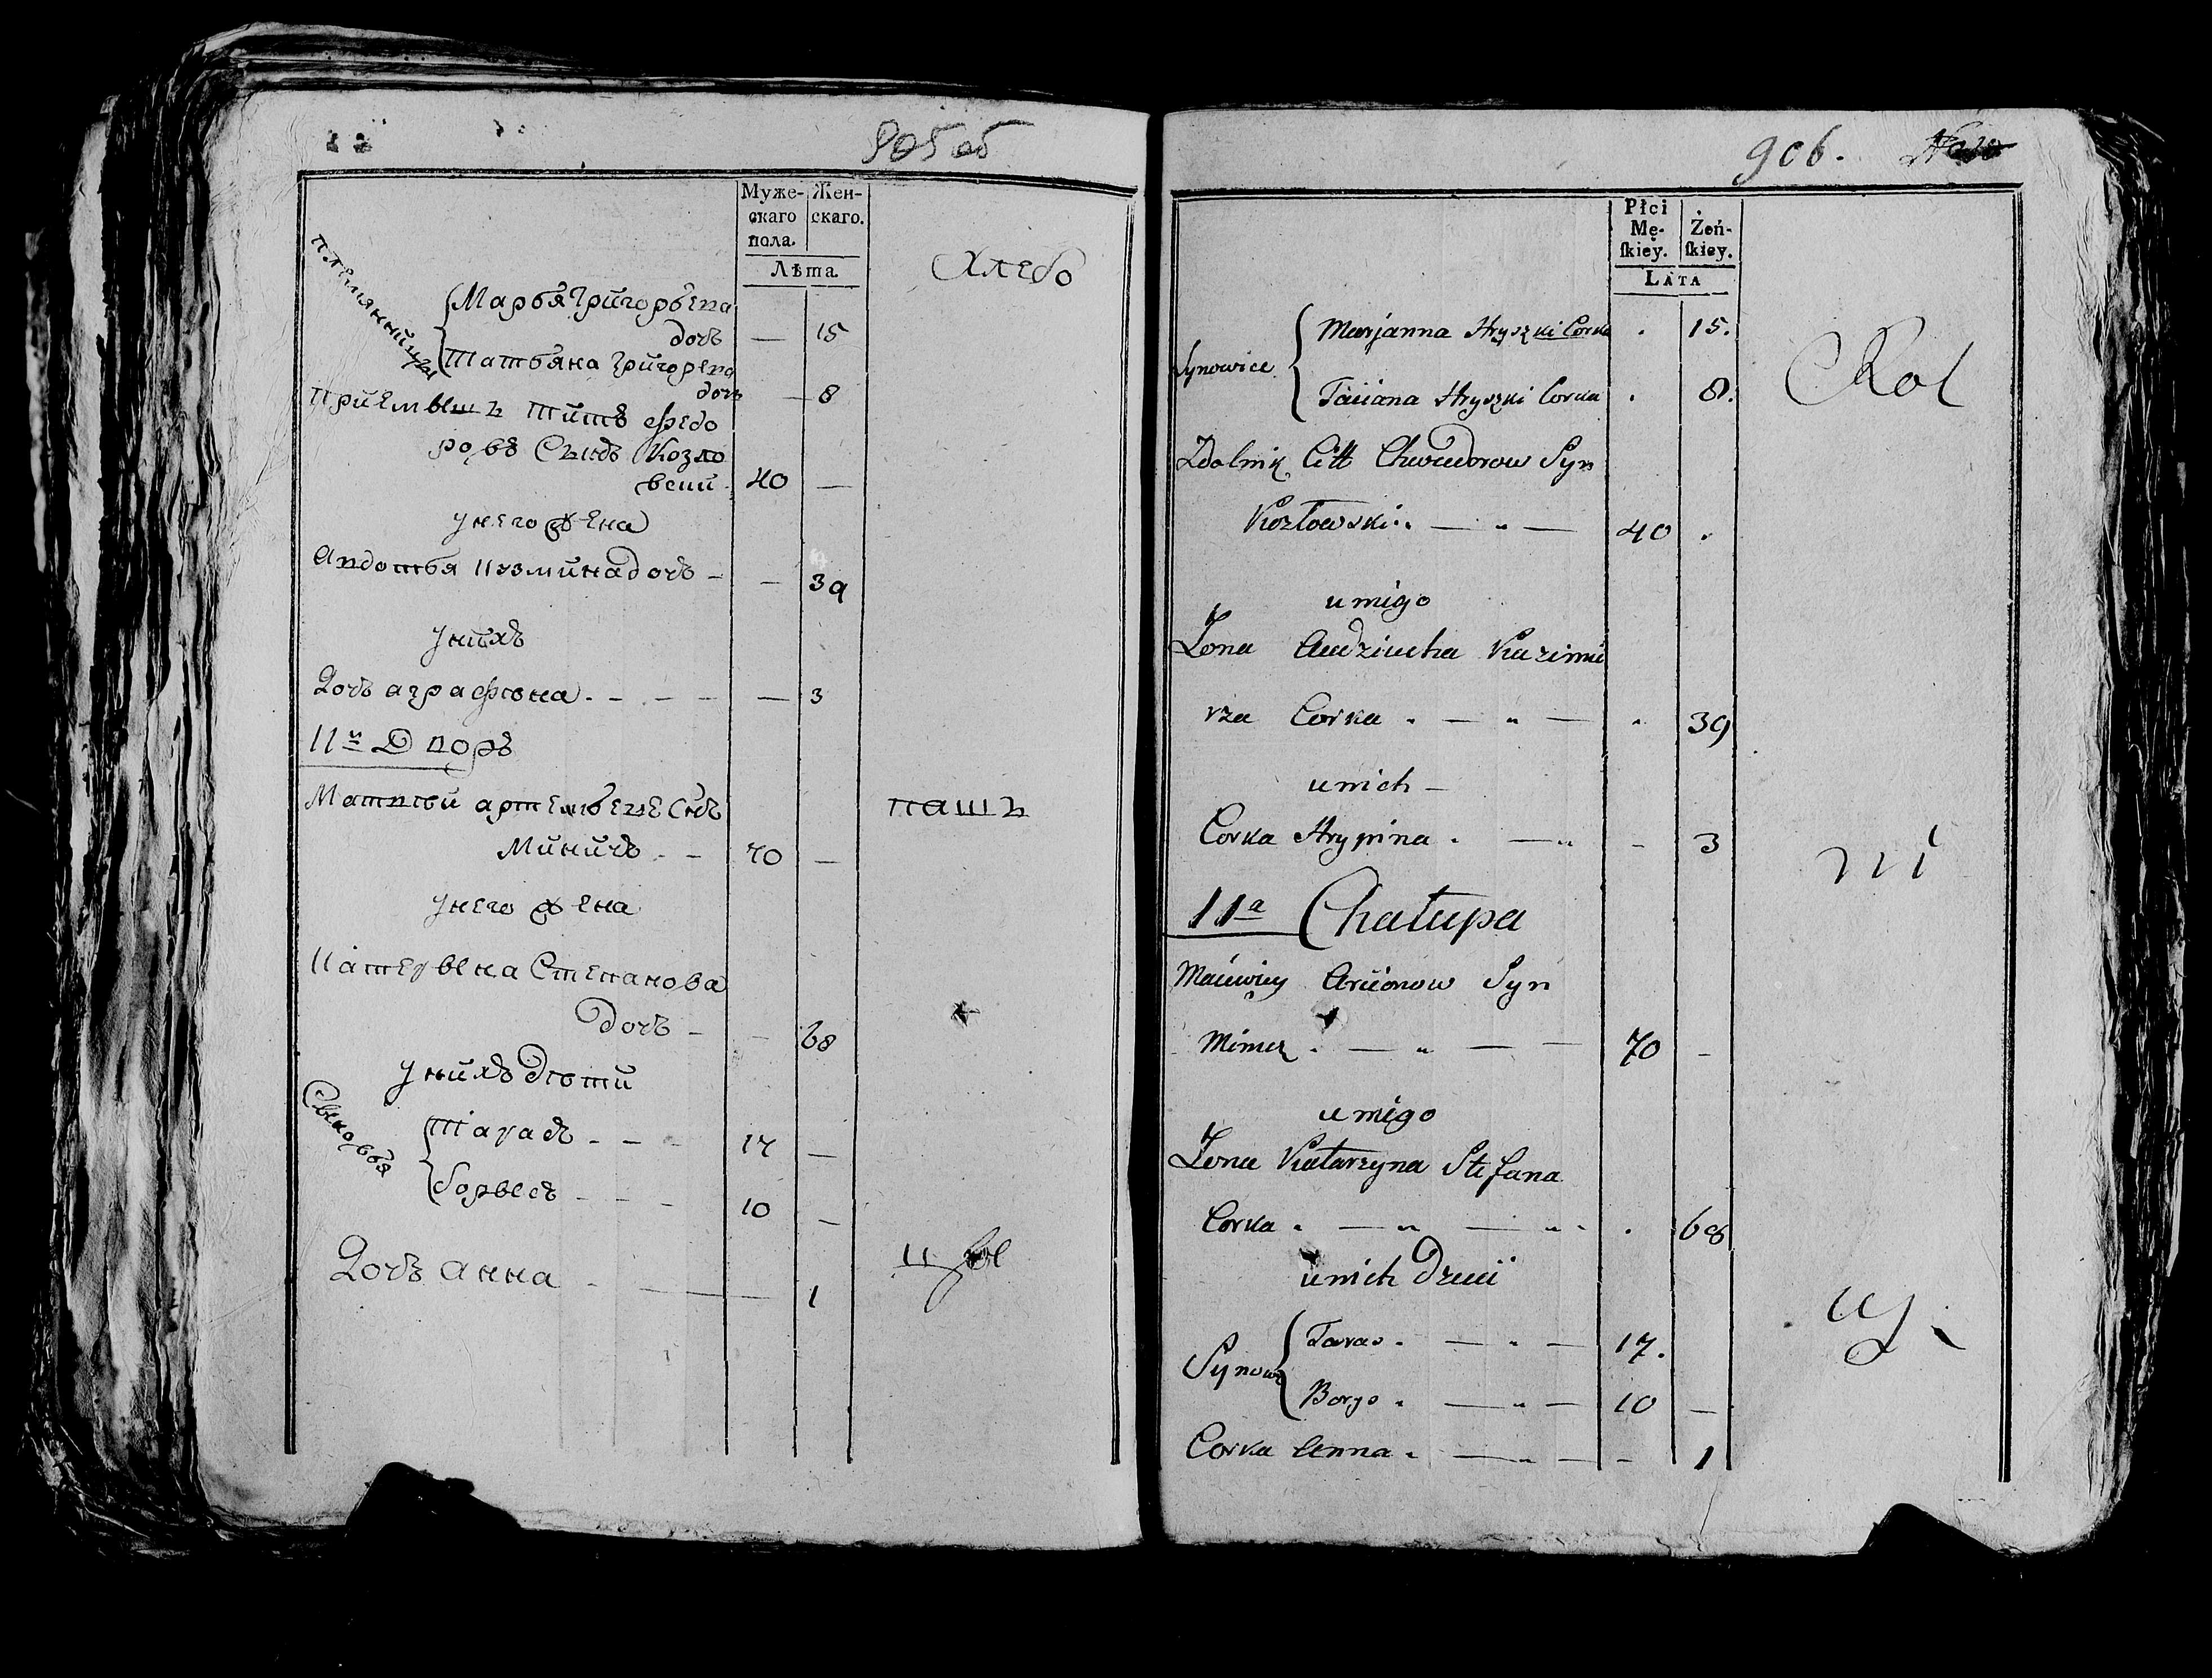 905 об
Муже-
скаго
пола.
Жен-
скаго.
Лѣта
Хлебо
племянницы
Марья Григорьева
дочь — 15
Татьяна Григорева
дочь — 8
Приемышъ Титъ Федо
ровъ Сынъ Козло
вски 40 —
у него жена
Авдотья Кузмина дочь — — 39
у нихъ
Дочь аграфѣна — 3
11й Дворъ
Матвѣй артемьевъ Снъ
Миничъ — 70 —
пашъ
у него жена
Катерына Степанова
дочь — — 68
у нихъ дѣти
Сыновья
Тарасъ 17 —
борысъ 10 —
Дочь анна 1
цы
906.
Płci
Mę-
ſkiey.
Żeń-
ſkiey.
LATA
Rol
Synowice
Marjanna Hryszki Corka . 15.
Taciana Hryszki Corka . 8.
Zdolnik Citt Chwiedorow Syn
Kozłowski 40 .
u niego
Żona Audziucha Kuzimie
rza Corka 39
u nich —
Corka Hrypina . 3
ni
11a Chałupa
Maciwiey Arcionow Syn
Minicz . 70 —
u niego
Żona Katarzyna Stefana
Corka . 68
u nich Dzieci
cy.
Synow
Taras . 17.
Borys . 10 —
Corka Anna . 1